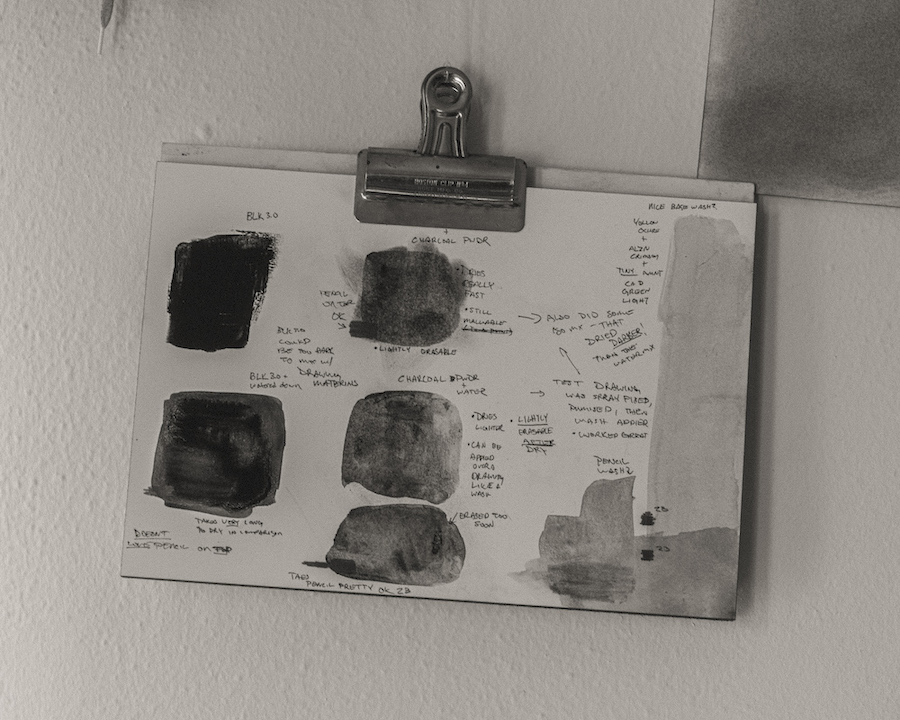 BLK 3.0
+
CHARCOAL PWDR
NICE BASE WASH?
YELLOW
OCHRE
+
ALZN
CRIMSON
+
TINY AMNT
CAD
GREEN
LIGHT
PENCIL
ON TOP
OK
• DRIES
REALLY
FAST
• STILL
• LIGHTLY ERASABLE
ALSO DID SOME
THAT
DRIED DARKER,
THAN THE
COULD
BE TOO DARK
TO MIX W/
DRAWING
MATERIALS
BLK 3.0 +
WATERED DOWN
CHARCOAL PWDR
+
WATER
• DRIES
LIGHTER
• CAN BE
APPLIED
OVER A
DRAWING
LIKE A
WASH
• LIGHTLY
ERASABLE
AFTER
DRY
TEST DRAWING
WAS SPRAY FIXED,
THEN
WASH APPLIED
• WORKED GREAT
PENCIL
WASH?
2B
2B
ERASED TOO
SOON
TAKES VERY LONG
TO DRY IN COMPARISON
DOESN'T
PENCIL ON TOP
TAKES
PENCIL PRETTY OK 2B